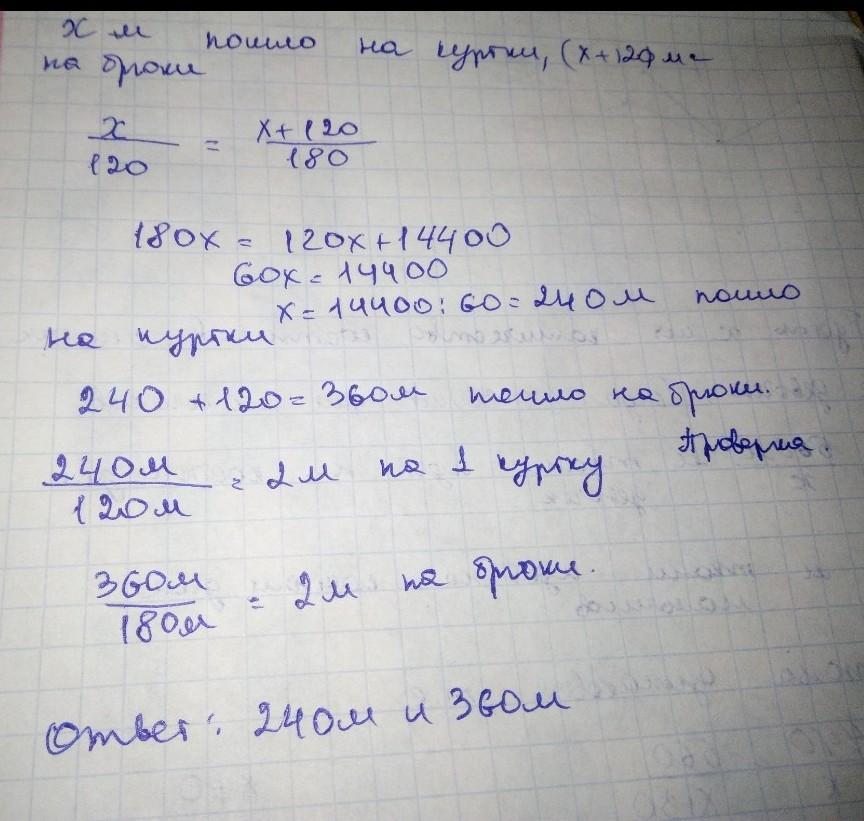 x м пошло на куртки, (x+120) м -
на брюки
x/120 = x+120/180
180x = 120x+14400
60x = 14400
x = 14400:60 = 240м пошло
на куртки
240 +120 = 360м пошло на брюки.
Проверка.
240м/120м = 2м на 1 куртку
360м/180м = 2м на брюки.
Ответ: 240м и 360м